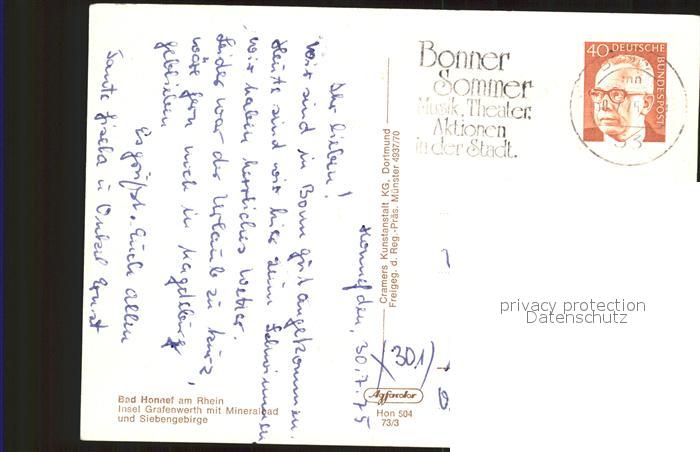 Bonner
Sommer
Musik, Theater,
Aktionen
in der Stadt.
40 DEUTSCHE
BUNDESPOST
53
Honnef den, 30.7.75
Ihr lieben!
Wir sind in Bonn gut angekommen.
Heute sind wir hier zum Schwimmen
wir haben herrliches Wetter.
Leider war der Urlaub zu kurz,
wäre gern noch in Magdeburg
geblieben
Es grüßt Euch allen
Tante Gisela u Onkel Ernst
Cramers Kunstanstalt KG, Dortmund
Freigeg. d. Reg.-Präs. Münster 4937/70
301
Agfacolor
Hon 504
73/3
Bad Honnef am Rhein
Insel Grafenwerth mit Mineralbad
und Siebengebirge
privacy protection
Datenschutz